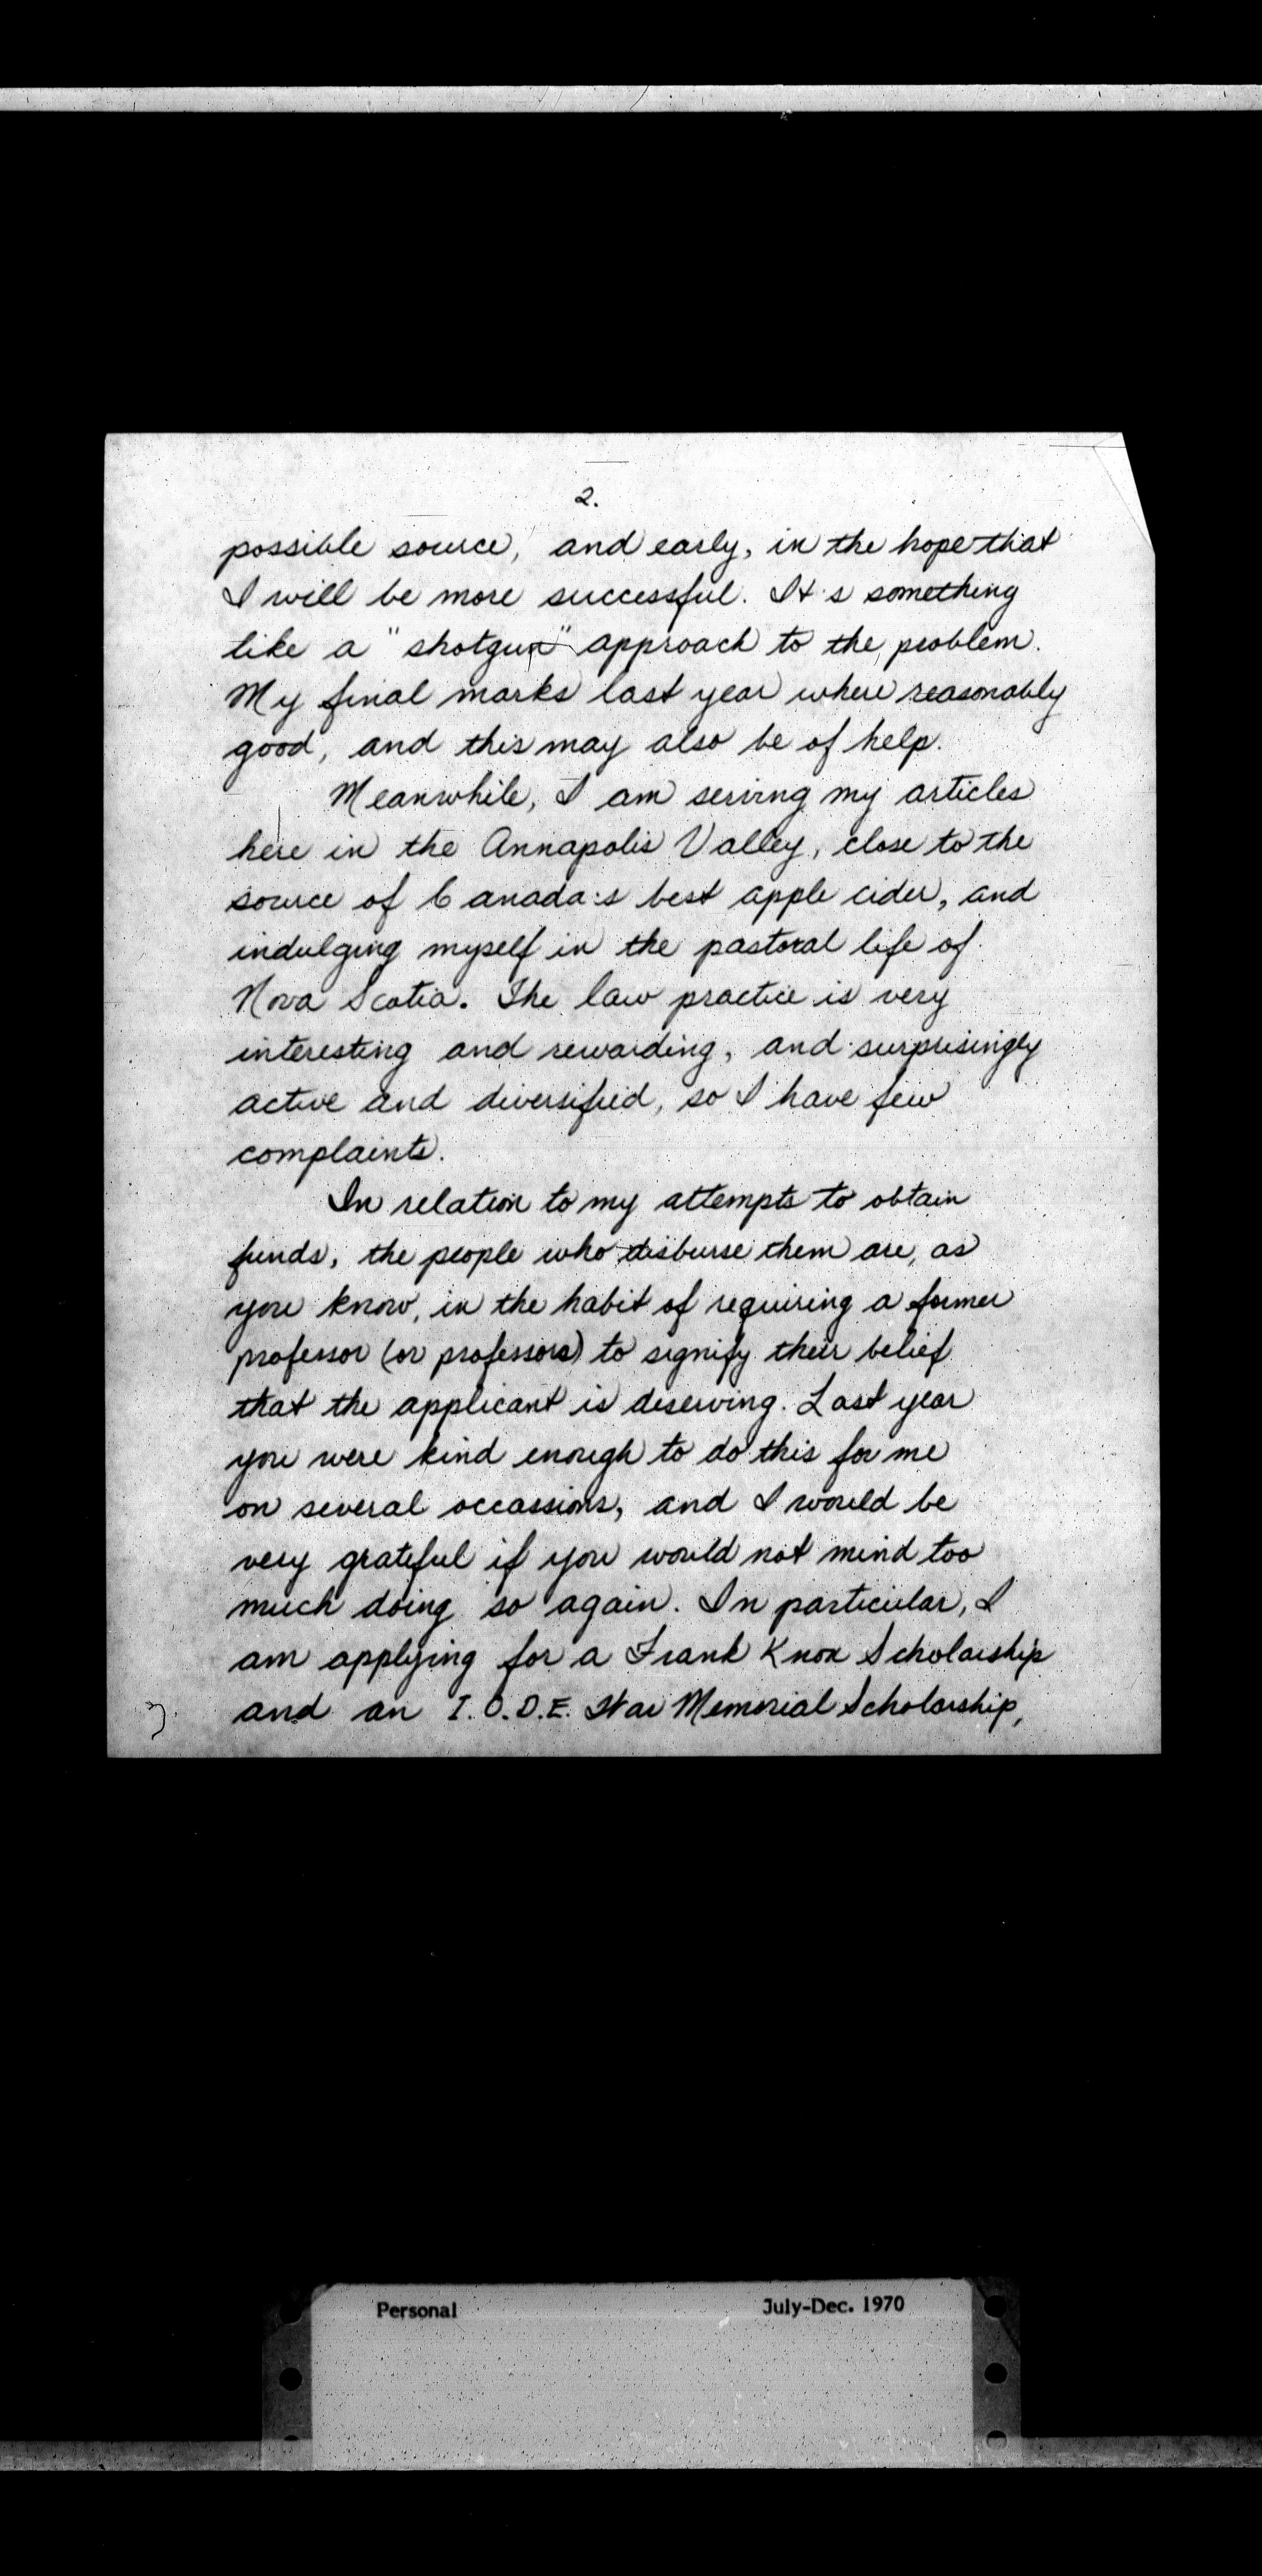 2.
possible source, and early, in the hope that
I will be more successful. It's something
like a "shotgun" approach to the problem.
My final marks last year where reasonably
good, and this may also be of help.
Meanwhile, I am serving my articles
here in the Annapolis Valley, close to the
source of Canada's best apple cider, and
indulging myself in the pastoral life of
Nova Scotia. The law practice is very
interesting and rewarding, and surprisingly
active and diversified, so I have few
complaints.
In relation to my attempts to obtain
funds, the people who disburse them are, as
you know, in the habit of requiring a former
professor (or professors) to signify their belief
that the applicant is deserving. Last year
you were kind enough to do this for me
on several occassions, and I would be
very grateful if you would not mind too
much doing so again. In particular, I
am applying for a Frank Knox Scholarship
and an I.O.D.E. War Memorial Scholarship,
Personal July-Dec. 1970